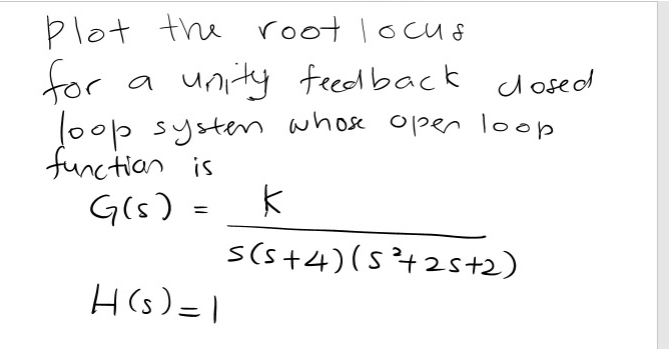 Plot the root locus
for a unity feedback closed
loop system whose open loop
function is
G(s) = K
s(s+4)(s²+2s+2)
H(s)=1